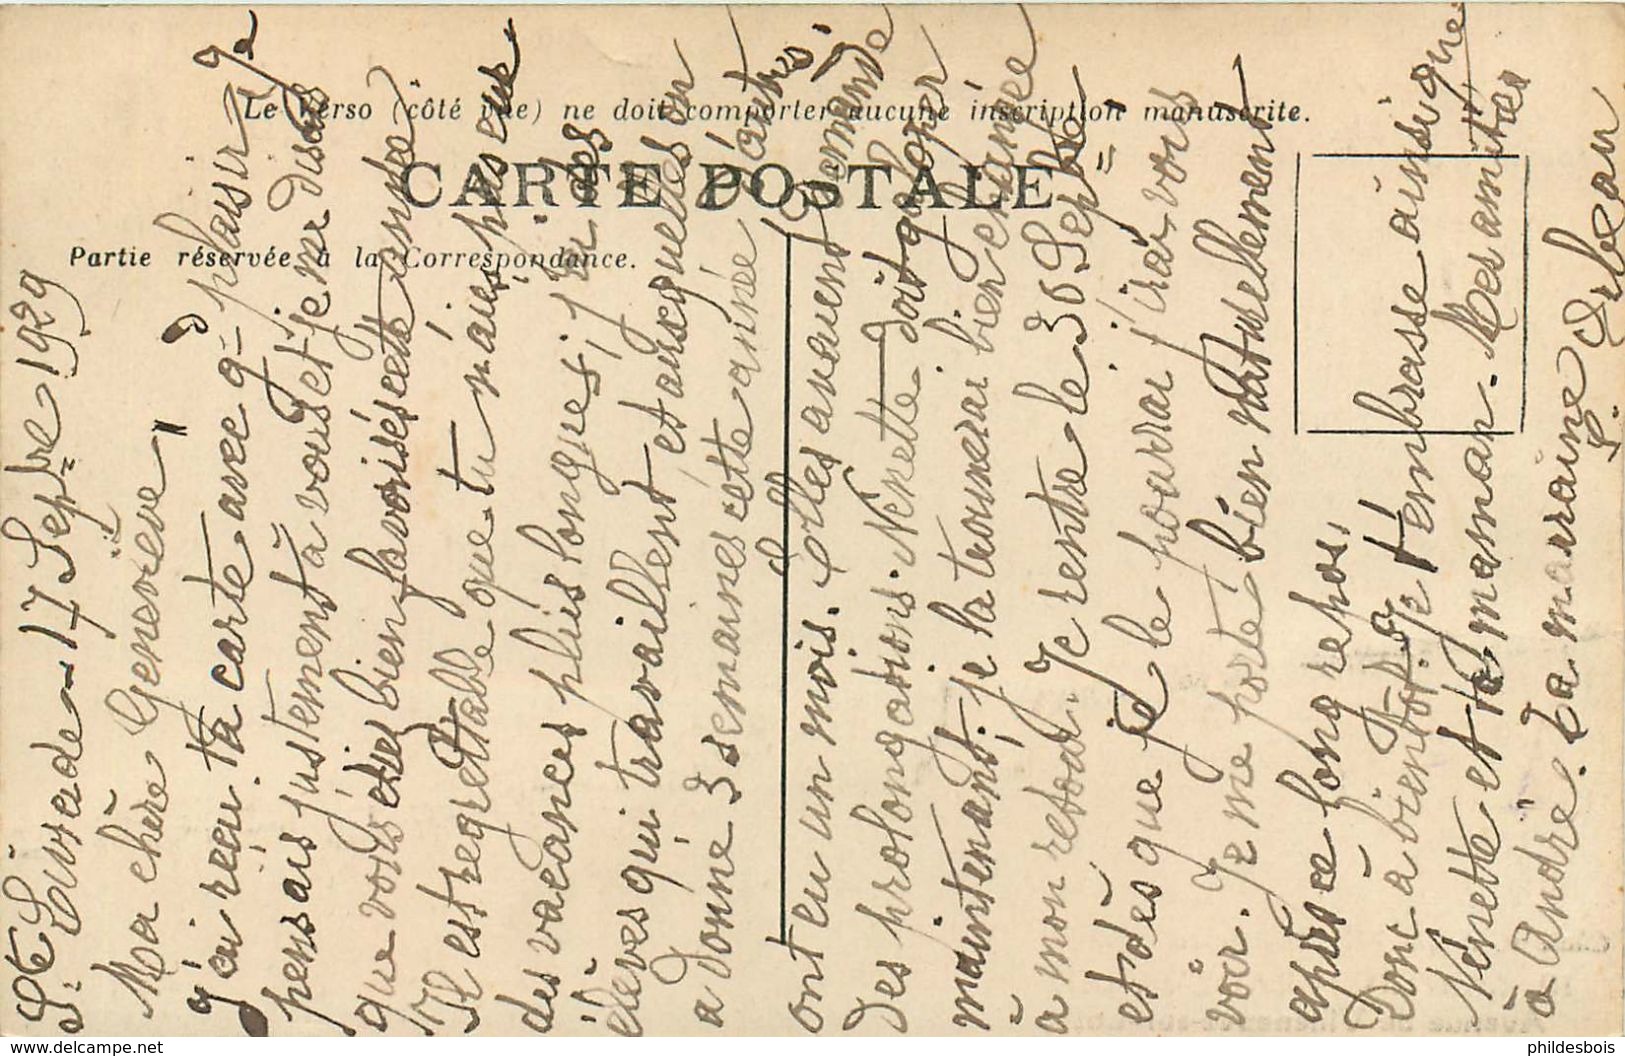 Le Verso (côté vue) ne doit comporter aucune inscription manuscrite.
CARTE POSTALE
Partie réservée à la Correspondance.
Ste Livrade - 17 Sepbre 1929
Ma chère Geneviève,
J'ai reçu ta carte avec gd plaisir Je
pensais justement à vous et je me disais
que vous étiez bien favorisés cette année
Il est regrettable que tu n'aies pas eu
des vacances plus longues, j'ai des
élèves qui travaillent et auxquelles on
a donné 3 semaines cette année d'autres
ont eu un mois. Elles avaient demandé
des prolongations. Nénette doit galoper
maintenant, je la trouverai bien changée
à mon retour. Je rentre le 30 Sepbre
et dès que je le pourrai j'irai vous
voir. Je me porte bien naturellement
après ce long repos.
Donc à bientôt, je t'embrasse ainsi que
Nénette et ta maman. Mes amitiés
à André. Ta marraine
philedesbois
www.delcampe.net